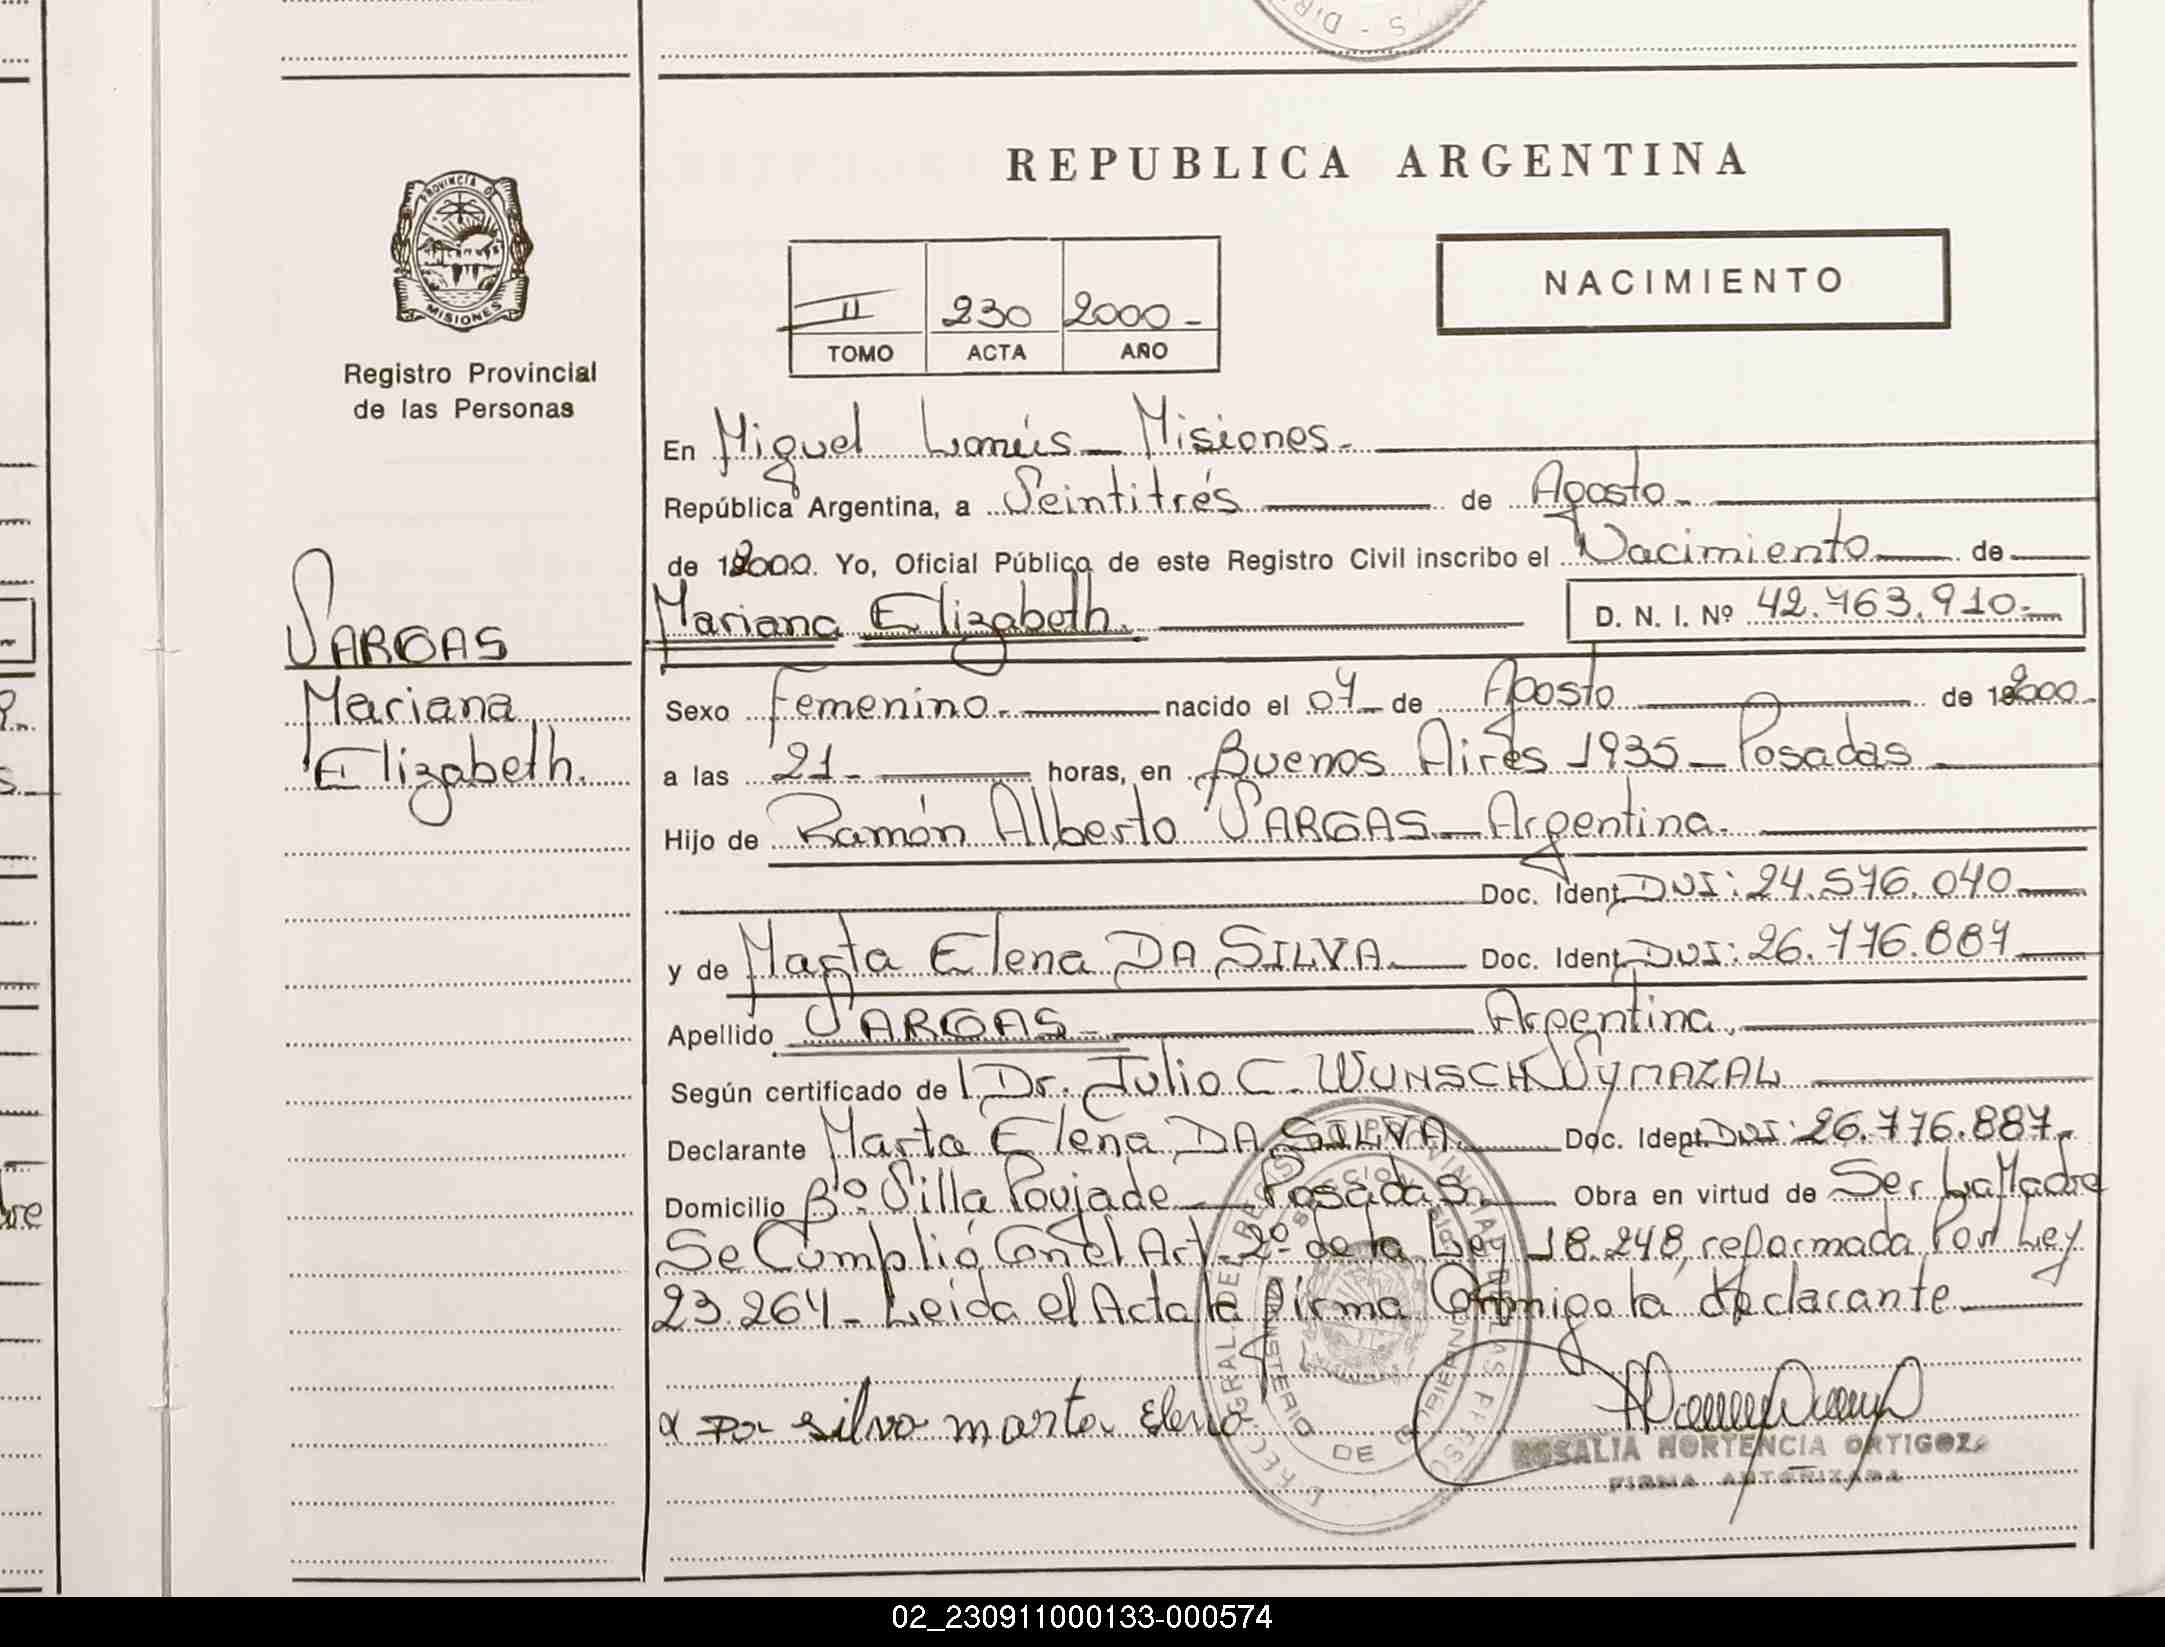 S - DIR
REPUBLICA ARGENTINA
PROVINCIA DE
MISIONES
Registro Provincial
de las Personas
NACIMIENTO
II 230 2000-
TOMO ACTA AÑO
En Miguel Lanús - Misiones.-
República Argentina, a Veintitrés de Agosto.-
de 192000. Yo, Oficial Público de este Registro Civil inscribo el Nacimiento de
Mariana Elizabeth. D. N. I. Nº 42.763.910.-
VARGAS
Mariana
Elizabeth.
Sexo Femenino.- nacido el 07 de Agosto de 192000.
a las 21- horas, en Buenos Aires 1935 - Posadas
Hijo de Ramón Alberto VARGAS - Argentina.
Doc. Ident. DNI: 24.576.040
y de Marta Elena DA SILVA. Doc. Ident. DNI: 26.776.887
Apellido VARGAS.- Argentina.
Según certificado de Dr. Julio C. WUNSCH VYMAZAL
Declarante Marta Elena DA SILVA. Doc. Ident. DNI: 26.776.887.
Domicilio Bº. Villa Poujade - Posadas. Obra en virtud de Ser La Madre
Se Cumplió Con el Art. 2º de la Ley 18.248, reformada Por Ley
23.264 - Leída el Acta la firma Conmigo la declarante
x Da silva marta Elena
ROSALIA HORTENCIA ORTIGOZA
FIRMA AUTORIZADA
MINISTERIO DE GOBIERNO
02_230911000133-000574